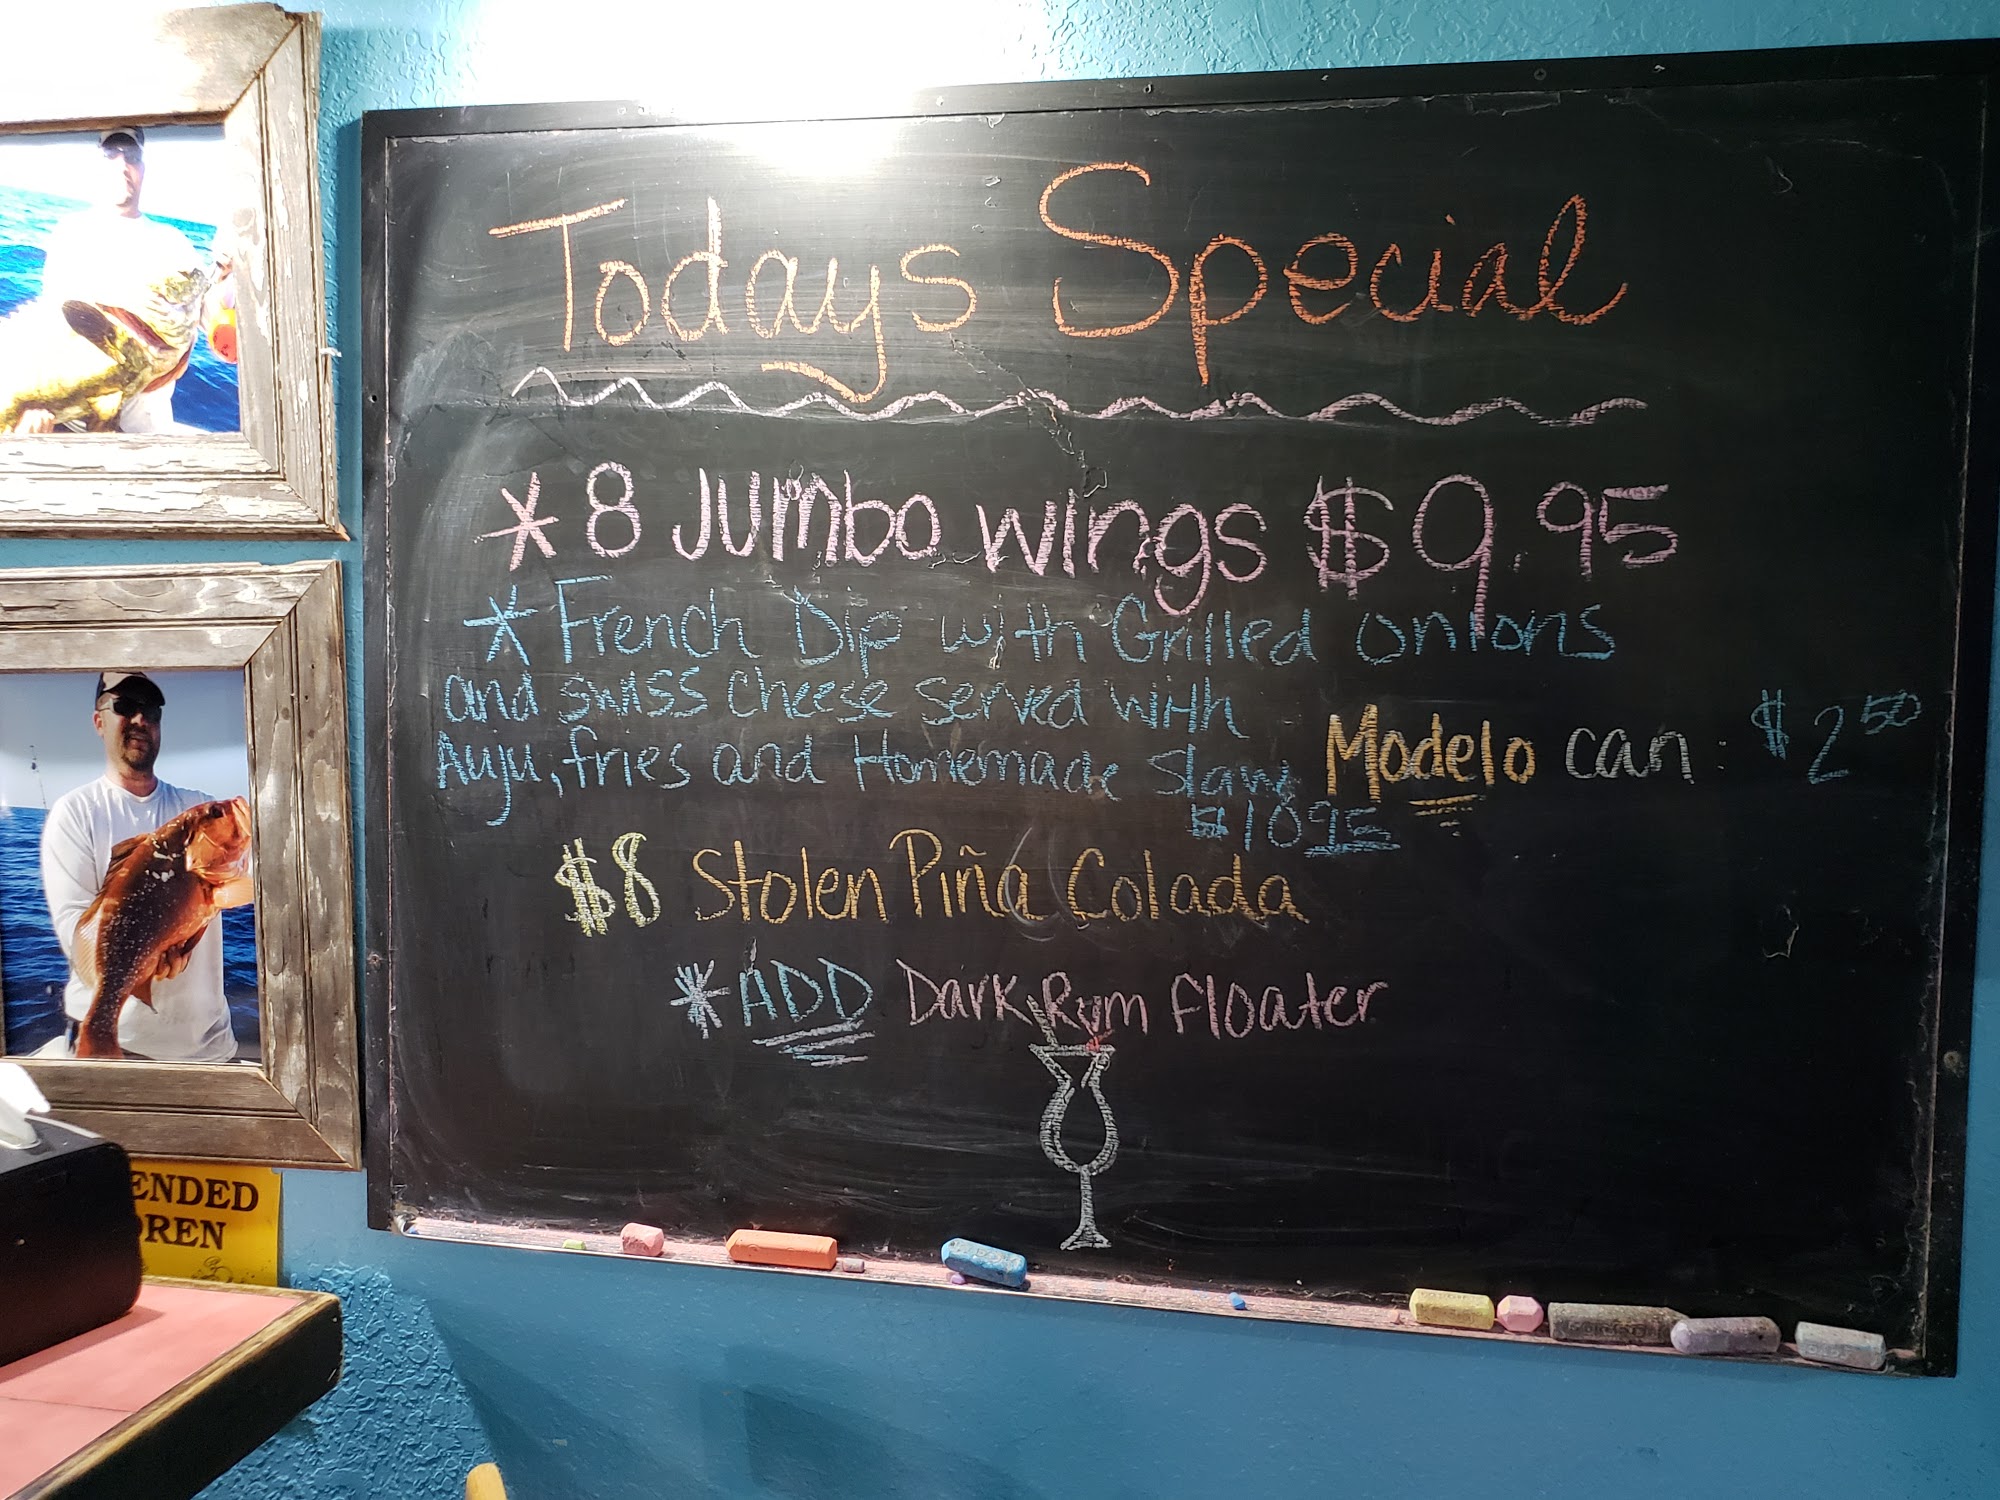 Todays Special
* 8 Jumbo wings $9.95
* French Dip with Grilled onions
and swiss cheese served with
Auju, fries and Homemade Slaw
$10.95
Modelo can: $2.50
$8 Stolen Piña Colada
* ADD Dark Rum Floater
ENDED
DREN